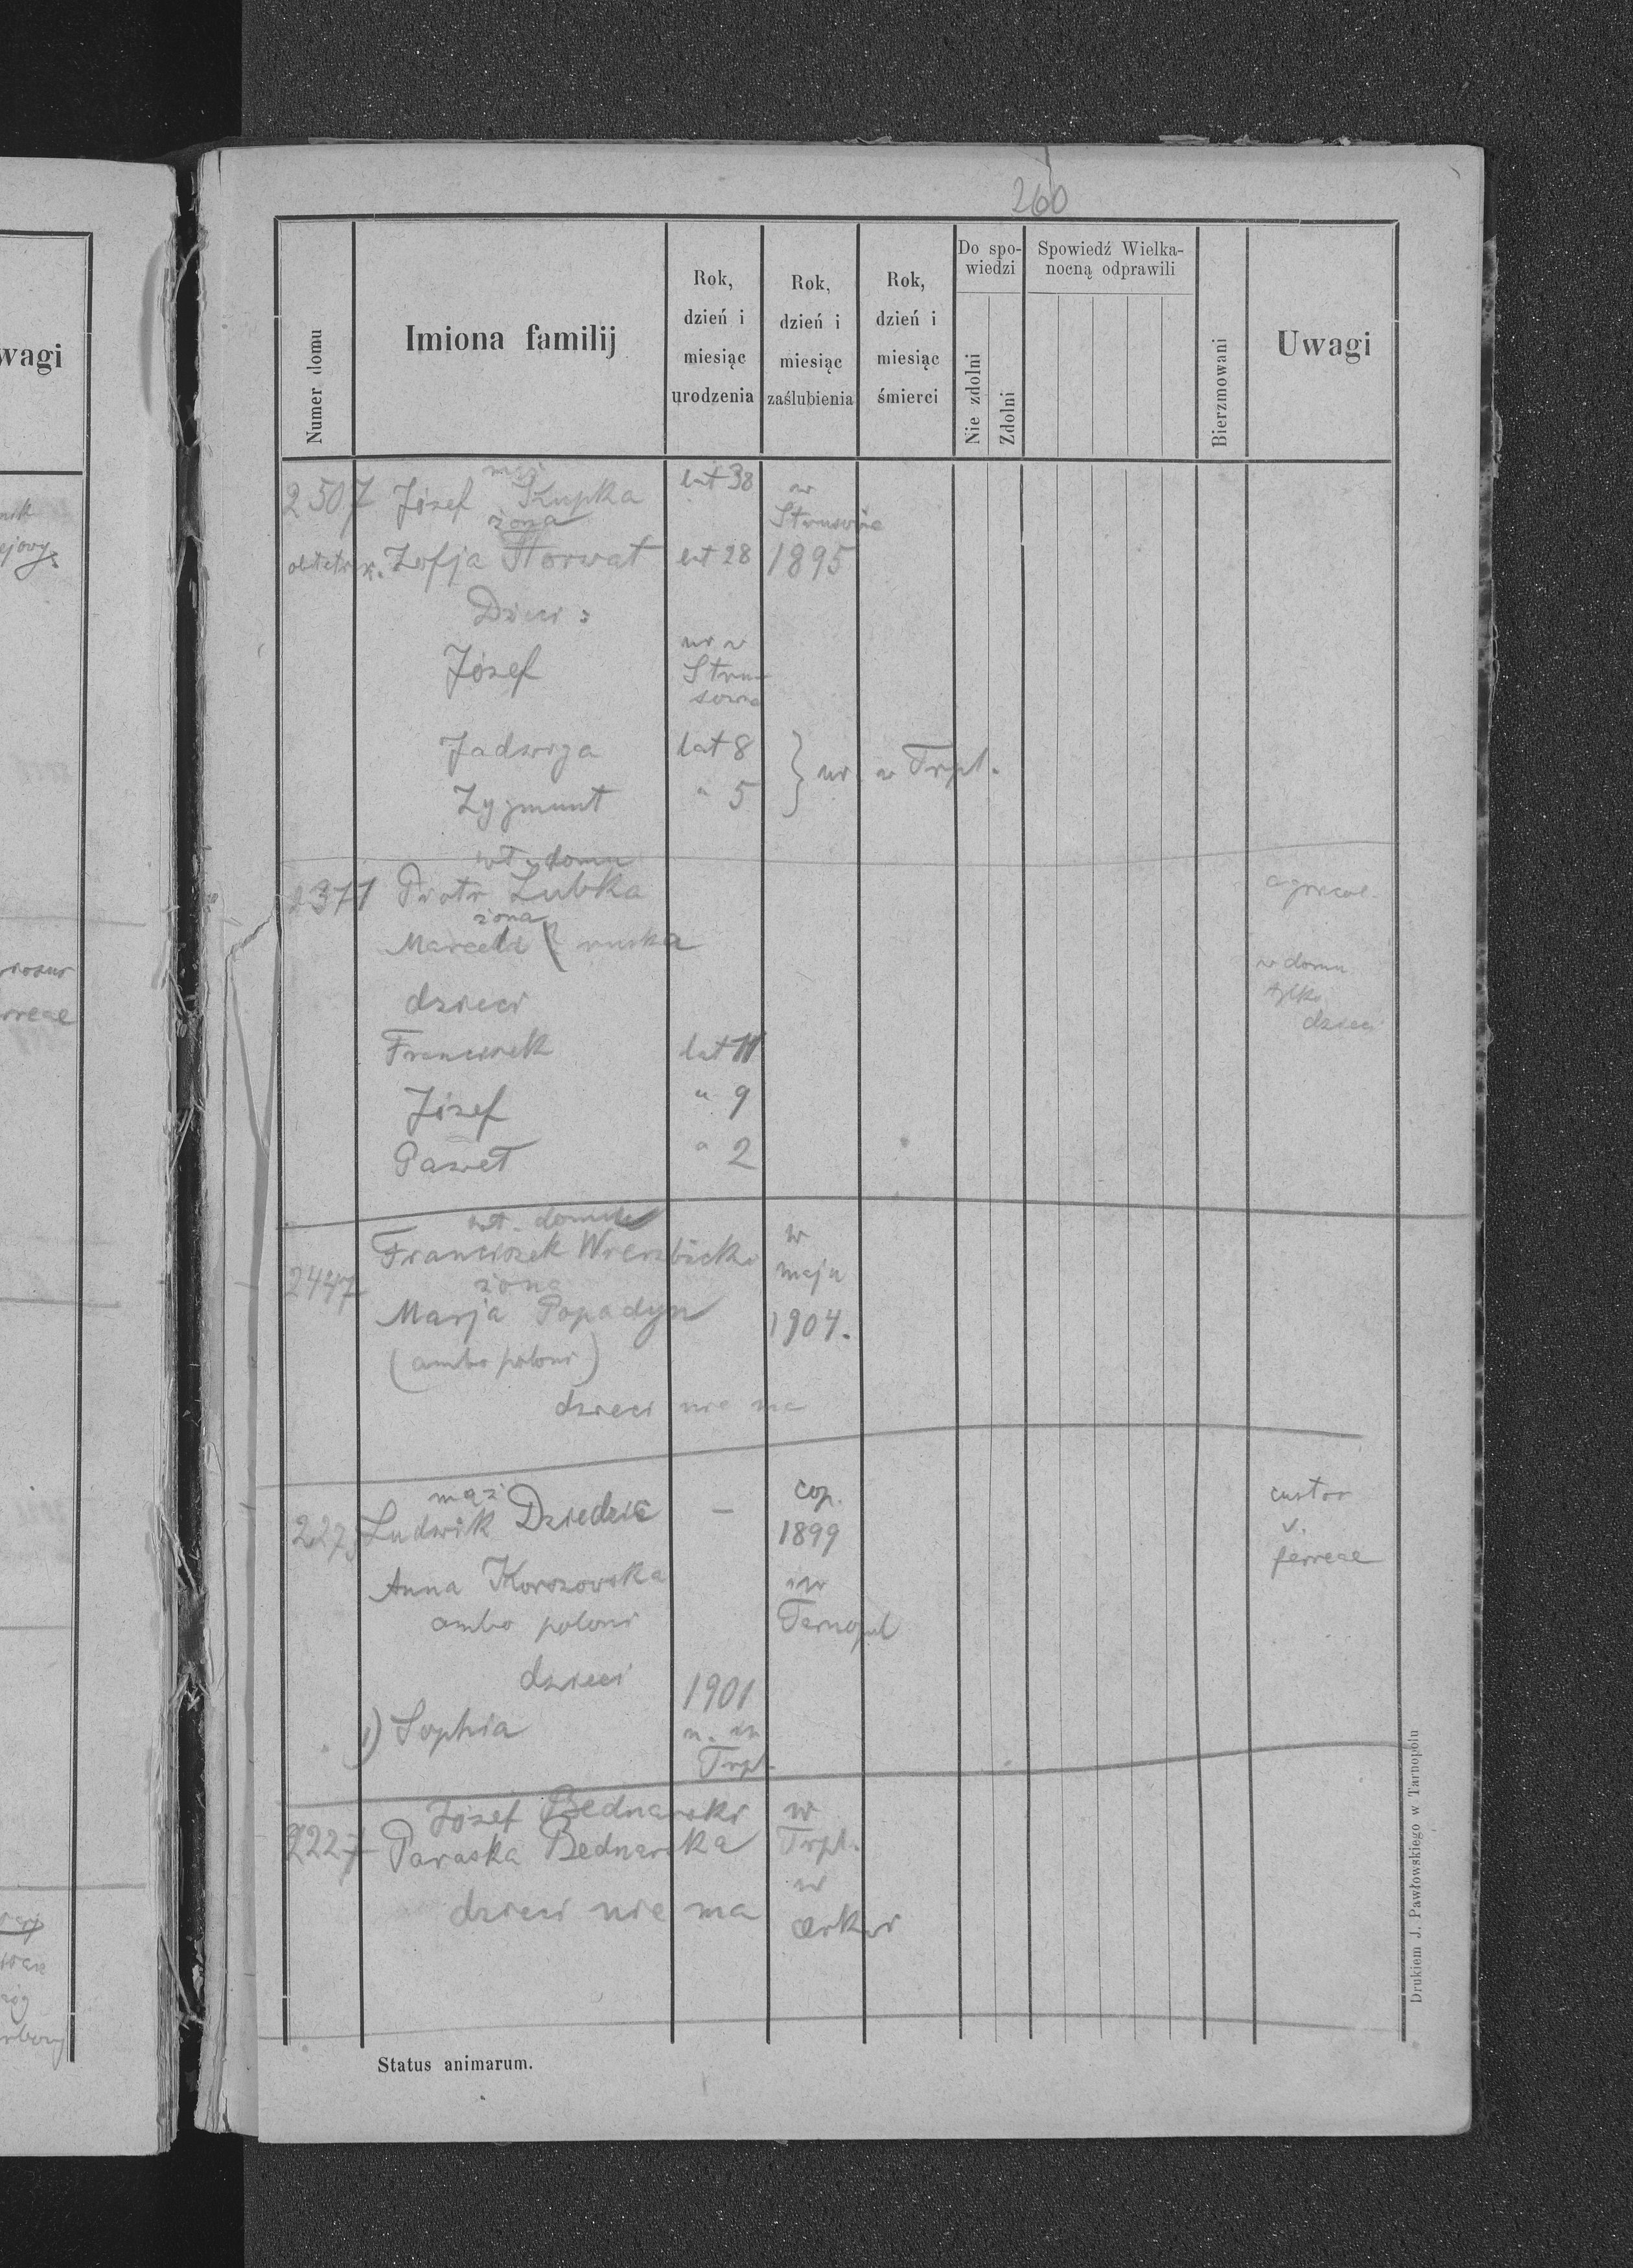 wagi
260
Numer domu
Imiona familij
Rok, dzień i miesiąc urodzenia
Rok, dzień i miesiąc zaślubienia
Rok, dzień i miesiąc śmierci
Do spo-
wiedzi
Nie zdolni
Zdolni
Spowiedź Wielka-
nocną odprawili
Bierzmowani
Uwagi
mąż
2507 Józef Kupka lat 38 w
żona Strusowie
Zofja Horwat lat 28 1895
Dzieci:
Józef ur w
Stru-
sowie
Jadwiga lat 8
Zygmunt " 5 } ur. w Trpl.
wł. domu
2371 Piotr Zubka agricol.
żona
Marcela ruska
w domu
tylko
dzieci
dzieci
Franciszek lat 11
Józef " 9
Paweł " 2
wł. domu
Franciszek Wierzbicki w
2447 żona maju
Marja Popadyn 1904.
(ambo poloni)
dzieci nie ma
mąż cop. custor
Ludwik Dziedzic — 1899 v.
ferreae
Anna Korszowska in
ambo poloni Tarnopol
dzieci 1901
1) Sophia n. in
Trpl.
Józef Bednarski w
2227 Paraska Bednarska Trpl.
w
dzieci nie ma cerkwi
Status animarum.
Drukiem J. Pawłowskiego w Tarnopolu